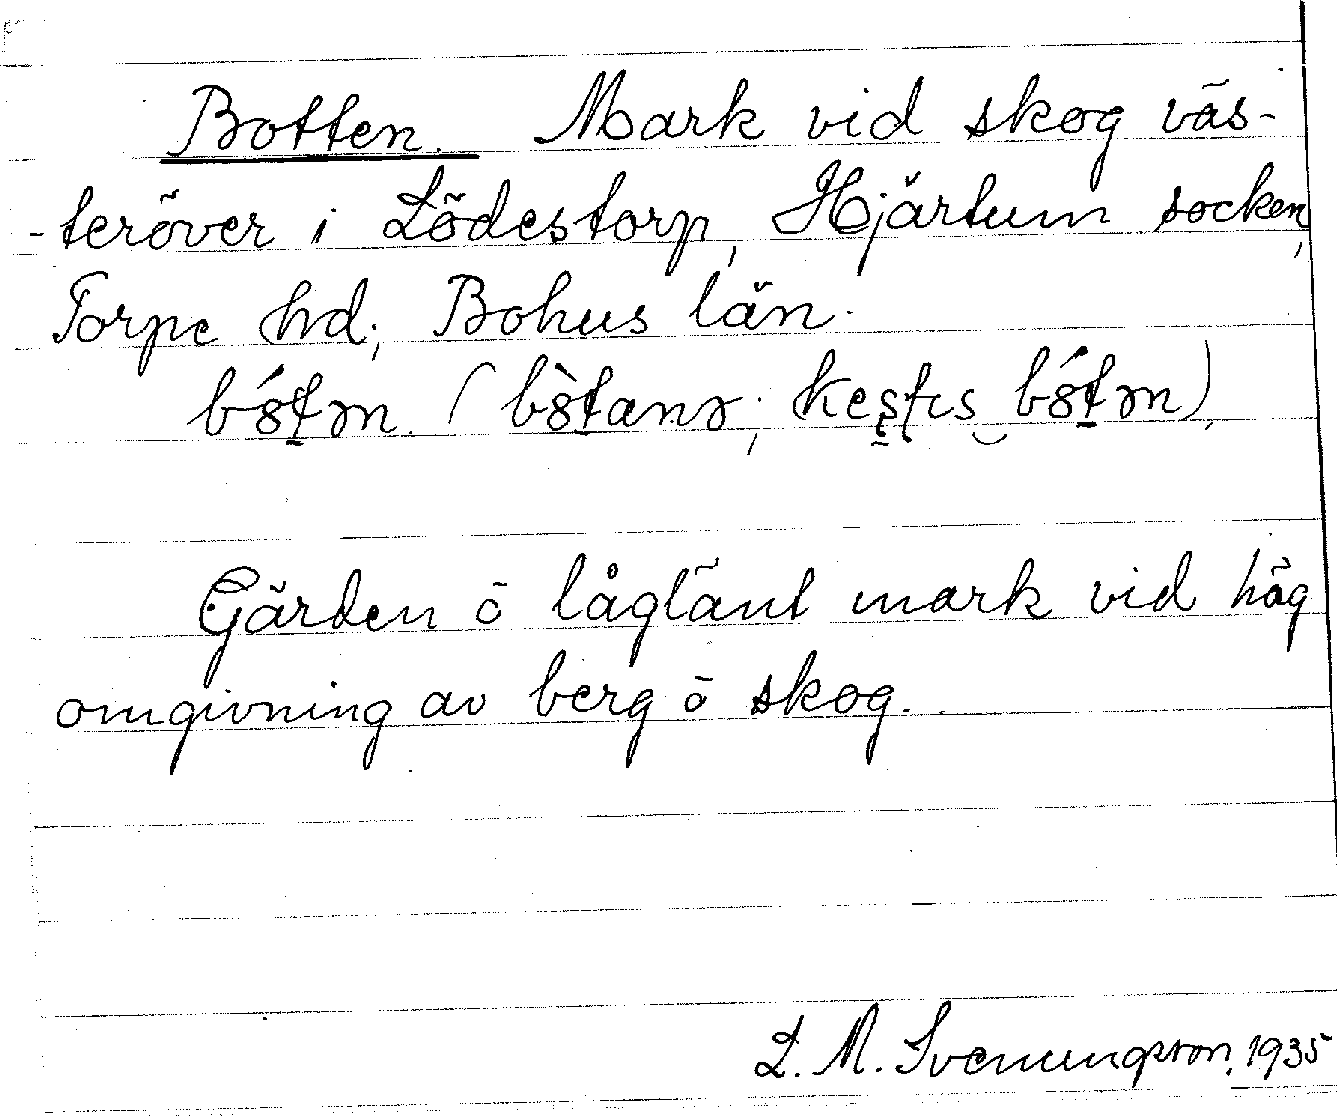 Botten. Mark vid skog väs-
-teröver i Lödestorp, Hjärtum socken,
Torpe hd; Bohus län.
bótm. (bòtanɘ; kestis bótm),
Gärden ö låglänt mark vid hög
omgivning av berg ö skog.
L. M. Svenungsson, 1935